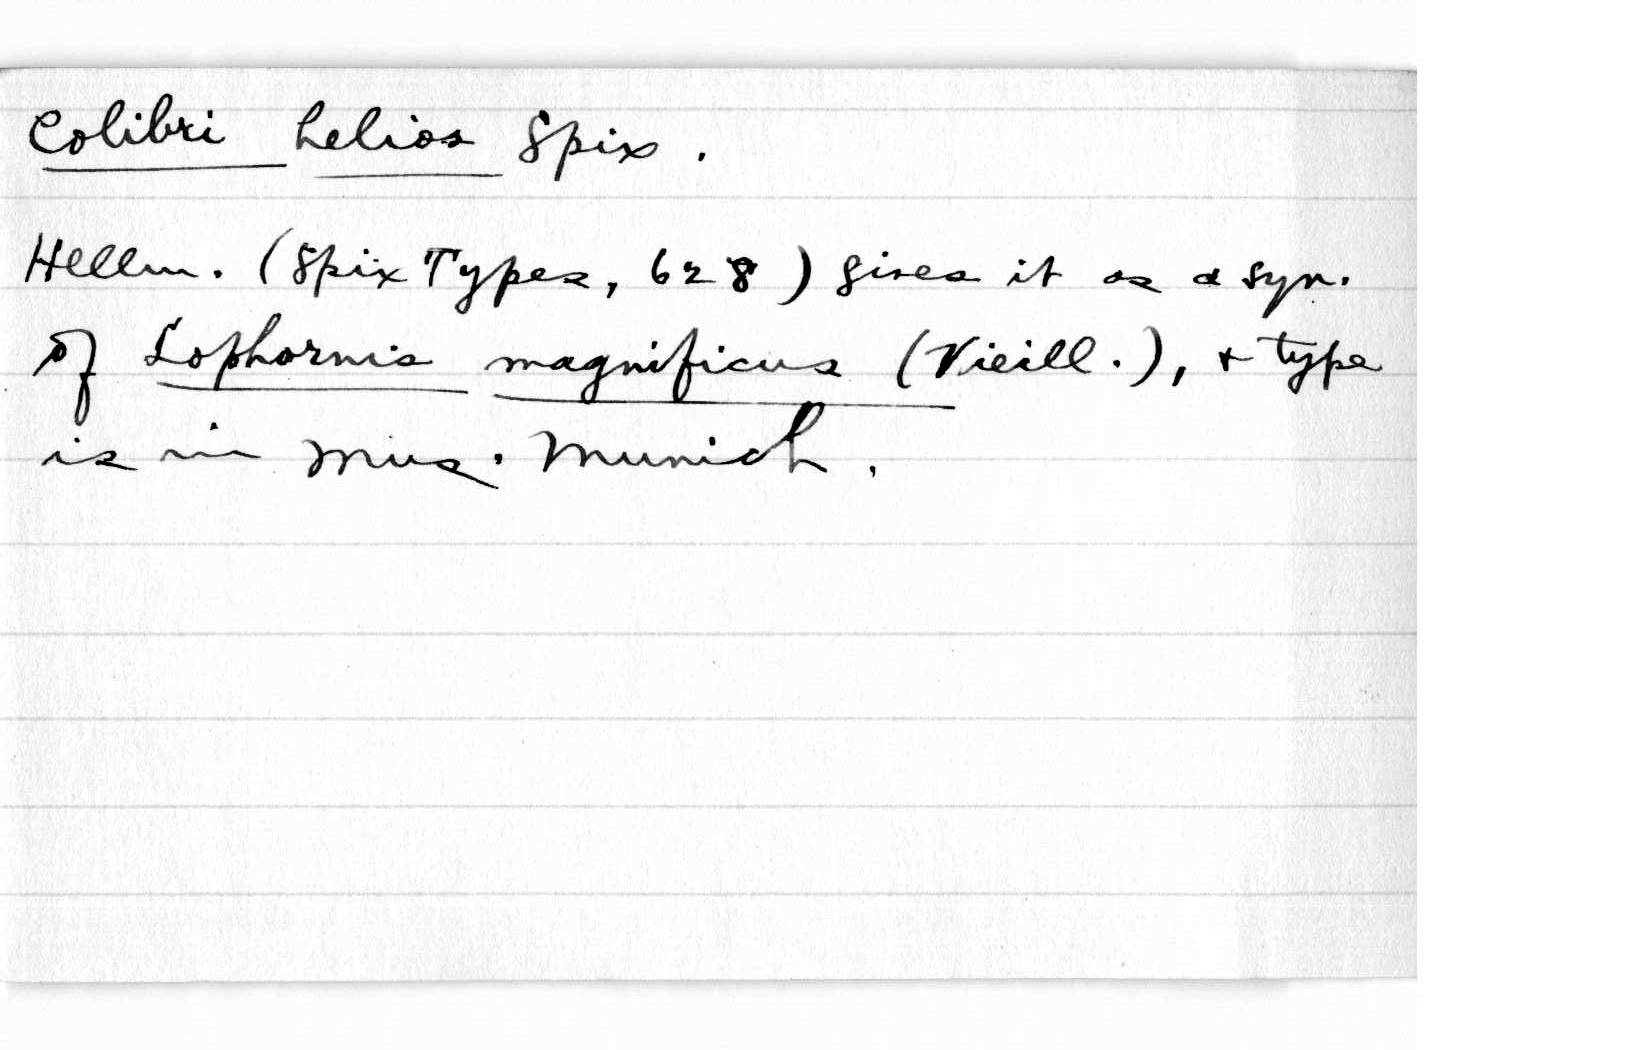 Colibri helios Spix.
Hellm. (Spix Types, 628) gives it as a syn.
of Lophornis magnificus (Vieill.), + type
is in Mus. Munich.